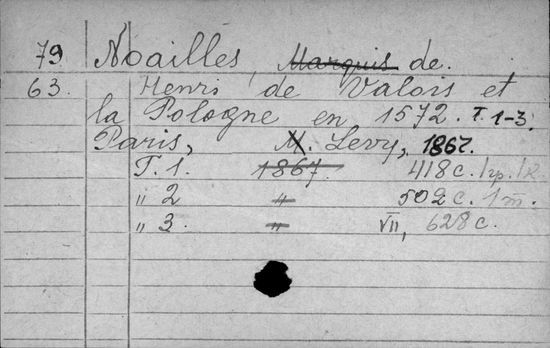 79 Noailles, Marquis de.
63. Henri de Valois et
la Pologne en 1572. T. 1-3.
Paris, M. Levy, 1867.
T. 1. 1867. 418 c.
" 2 " 502 c. 1 m.
" 3. " VII, 628 c.